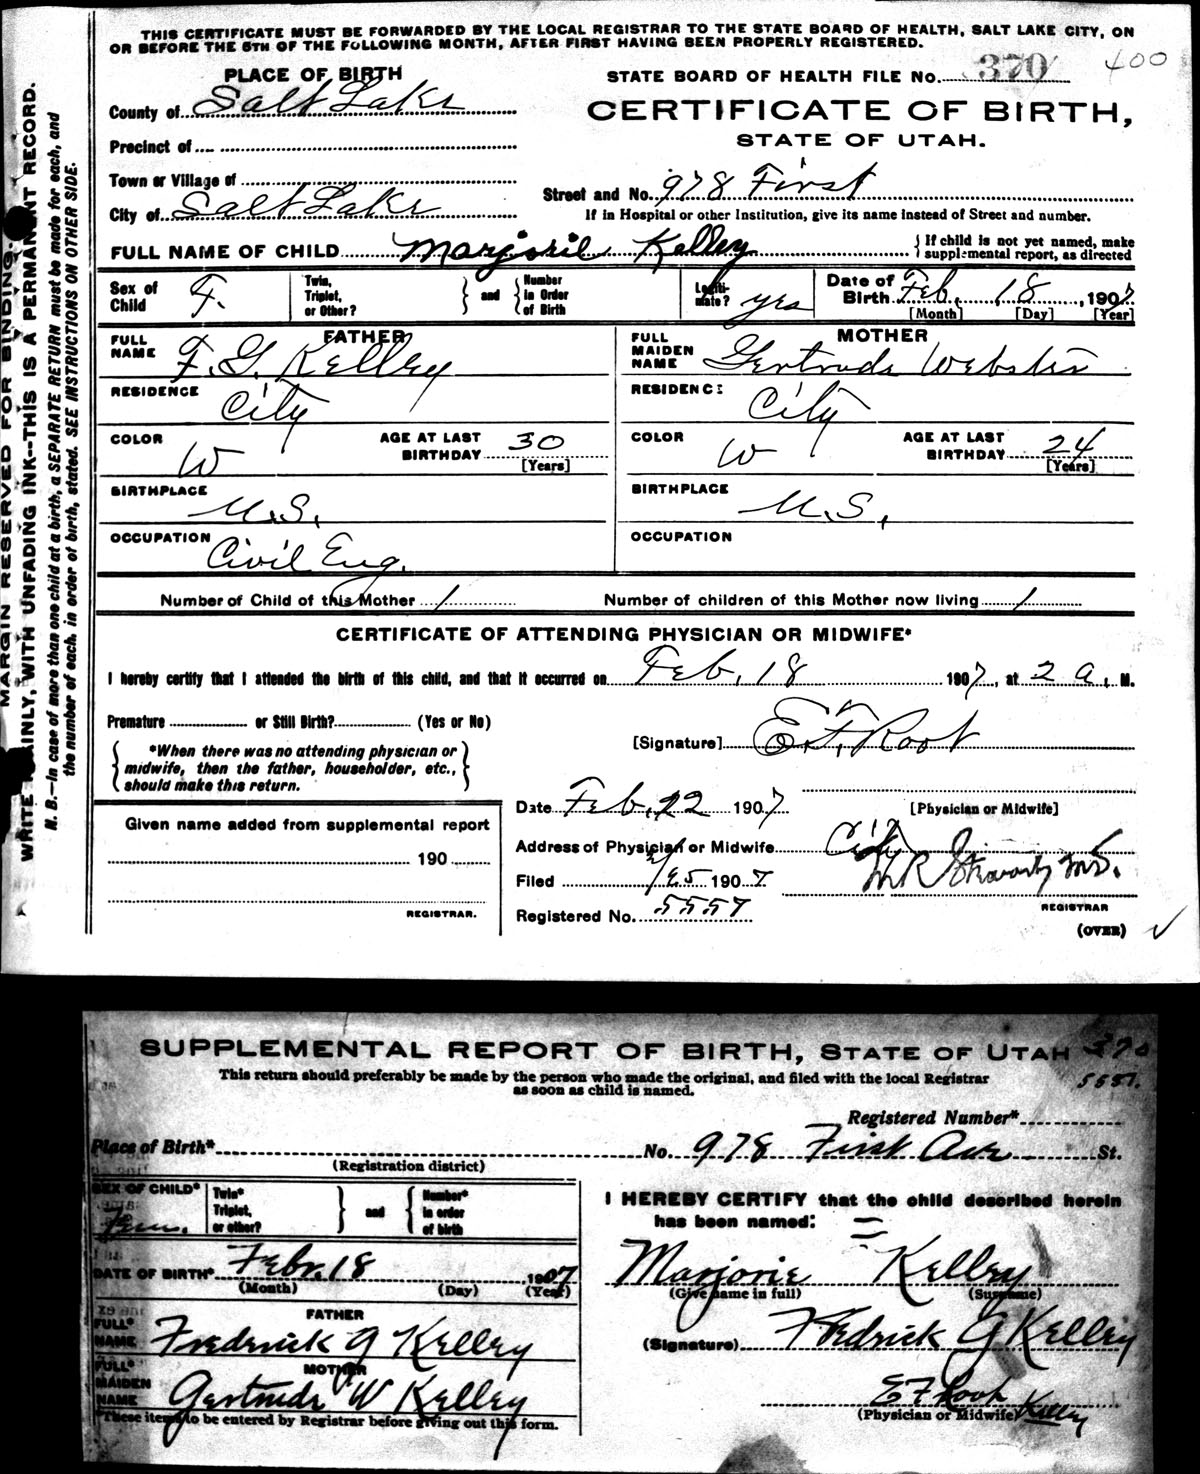 THIS CERTIFICATE MUST BE FORWARDED BY THE LOCAL REGISTRAR TO THE STATE BOARD OF HEALTH, SALT LAKE CITY, ON
OR BEFORE THE 5TH OF THE FOLLOWING MONTH, AFTER FIRST HAVING BEEN PROPERLY REGISTERED.
PLACE OF BIRTH
STATE BOARD OF HEALTH FILE No. 370 400
County of Salt Lake
CERTIFICATE OF BIRTH,
STATE OF UTAH.
Precinct of
Town or Village of
Street and No. 978 First
City of Salt Lake
If in Hospital or other Institution, give its name instead of Street and number.
FULL NAME OF CHILD Marjorie Kelley
If child is not yet named, make
supplemental report, as directed
Sex of Child F.
Twin, Triplet, or Other?
and
Number in Order of Birth
Legiti-mate? yes
Date of Birth Feb. 18, 1907
[Month] [Day] [Year]
FATHER
FULL NAME F. G. Kelley
MOTHER
FULL MAIDEN NAME Gertrude Webster
RESIDENCE City
RESIDENCE City
COLOR W
AGE AT LAST BIRTHDAY 30
[Years]
COLOR W
AGE AT LAST BIRTHDAY 24
[Years]
BIRTHPLACE U.S.
BIRTHPLACE U.S.
OCCUPATION Civil Eng.
OCCUPATION
Number of Child of this Mother 1
Number of children of this Mother now living 1
CERTIFICATE OF ATTENDING PHYSICIAN OR MIDWIFE*
I hereby certify that I attended the birth of this child, and that it occurred on Feb. 18 1907, at 2 a. M.
Premature or Still Birth? (Yes or No)
[Signature] E. F. Root
*When there was no attending physician or
midwife, then the father, householder, etc.,
should make this return.
Date Feb. 22 1907
[Physician or Midwife]
Given name added from supplemental report
190
REGISTRAR.
Address of Physician or Midwife City
Filed 2/25 1907
M.D.
REGISTRAR
Registered No. 5557
(OVER)
MARGIN RESERVED FOR BINDING.
WRITE PLAINLY, WITH UNFADING INK--THIS IS A PERMANENT RECORD.
N. B.—In case of more than one child at a birth, a SEPARATE RETURN must be made for each, and
the number of each, in order of birth, stated. SEE INSTRUCTIONS ON OTHER SIDE.
SUPPLEMENTAL REPORT OF BIRTH, STATE OF UTAH 370
This return should preferably be made by the person who made the original, and filed with the local Registrar
as soon as child is named.
5557.
Registered Number*
Place of Birth*
No. 978 First Ave St.
(Registration district)
SEX OF CHILD* Fem.
Twin* Triplet, or other?
and
Number* in order of birth
I HEREBY CERTIFY that the child described herein
has been named:
DATE OF BIRTH* Febr. 18 1907
(Month) (Day) (Year)
Marjorie Kelley
(Give name in full) (Surname)
FATHER
FULL* NAME Frederick G Kelley
(Signature) Fredrick G Kelley
MOTHER
FULL* MAIDEN NAME Gertrude W Kelley
E F Root Kelley
(Physician or Midwife)
*These items to be entered by Registrar before giving out this form.